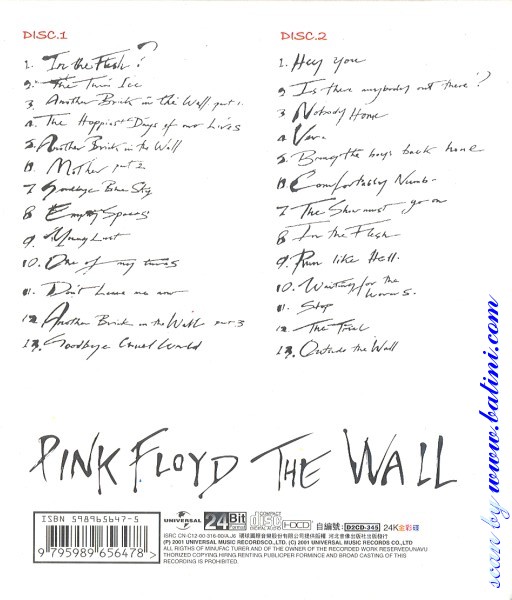 DISC.1
1. In the Flesh?
2. The Thin Ice
3. Another Brick in the Wall part 1.
4. The Happiest Days of our Lives
5. Another Brick in the Wall
6. Mother part 2
7 Goodbye Blue Sky
8 Empty Spaces
9. Young Lust
10. One of my turns
11. Don't Leave me now
12. Another Brick in the Wall part 3
13. Goodbye Cruel World
DISC.2
1. Hey you
2 Is there anybody out there?
3 Nobody Home
4 Vera
5. Bring the boys back home
6 Comfortably Numb
7 The Show must go on
8 In the Flesh
9. Run like Hell.
10. Waiting for the
Worms.
11. Stop
12. The Trial
13. Outside the Wall
PINK FLOYD THE WALL
ISBN 598965647-5
9 795989 656478 >
UNIVERSAL 24 Bit COMPACT disc DIGITAL AUDIO HDCD 自編號: D2CD-345 24K金彩碟
ISRC CN-C12-00-316-80/A.J6 環球國際音樂股份有限公司提供版權 河北音像出版社出版發行
(P) 2001 UNIVERSAL MUSIC RECORDSCO.,LTD. (C) 2001 UNIVERSAL MUSIC RECORDS CO.,LTD
ALL RIGTHS OF MINUFAC TURER AND OF THE OWNER OF THE RECORDED WORK RESERVEDUNAVU
THORIZED COPYING HIPING RENTING PUBLICPER FORMINCE AND BROAD CASTING OF THIS
RECORDING IS PROHIBITED.
scan by www.batini.com